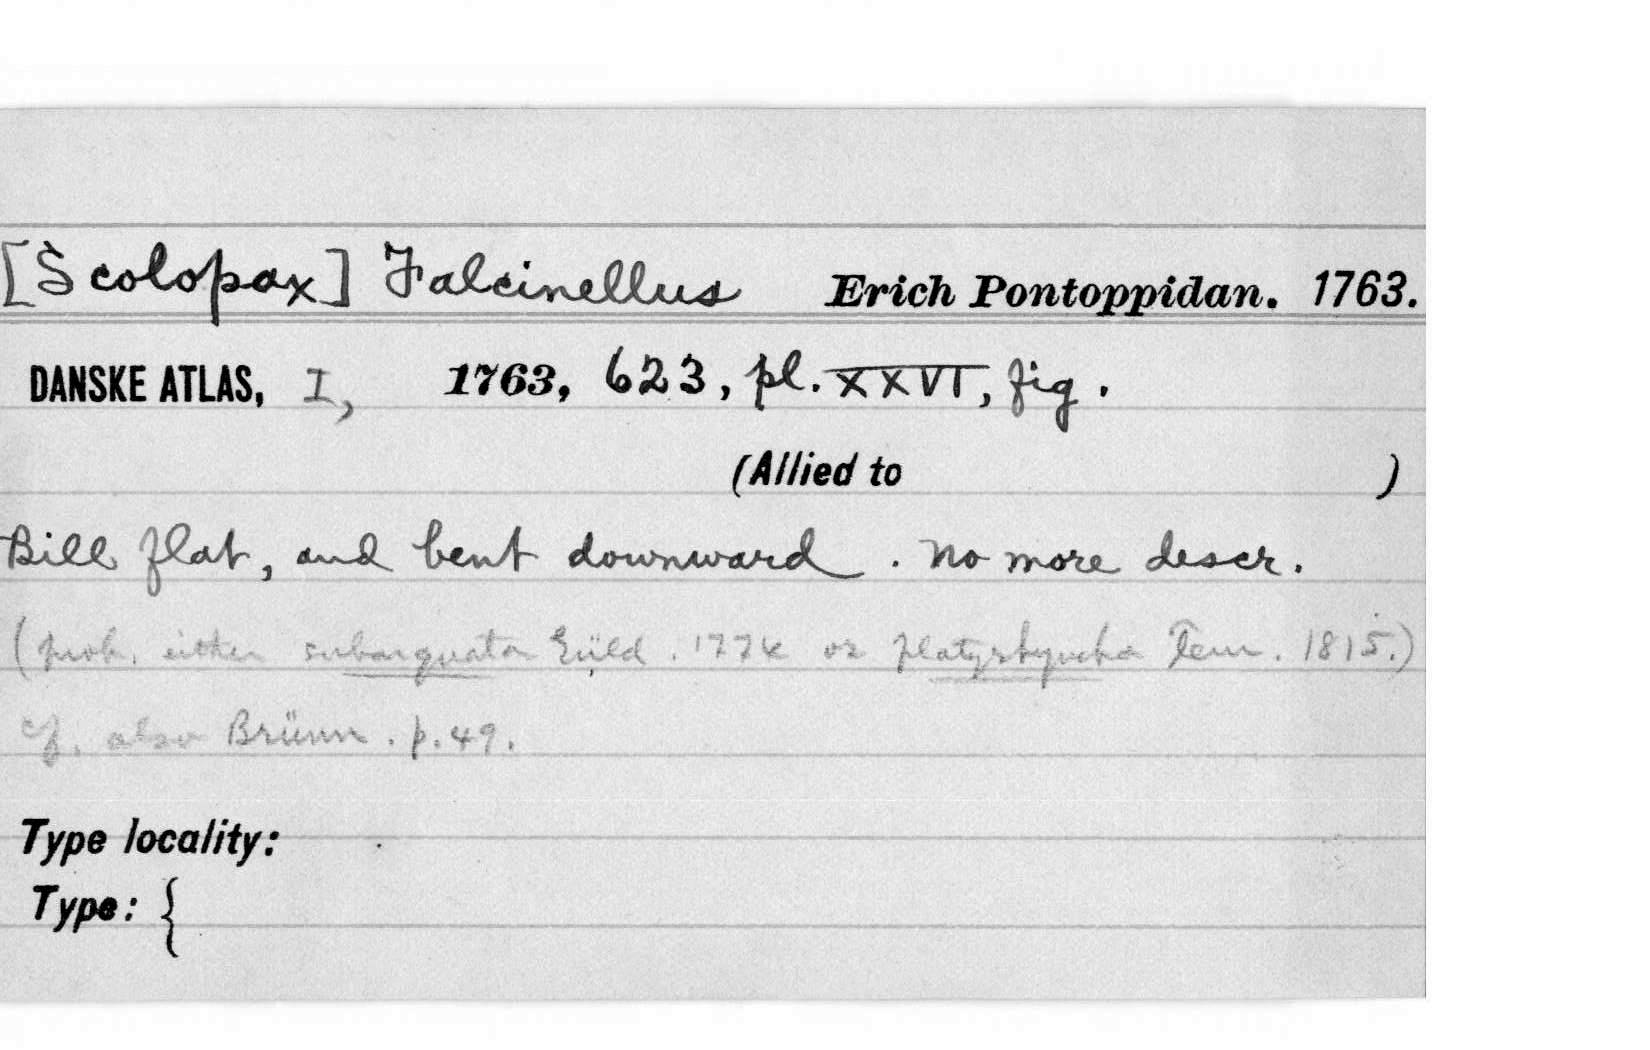 [Scolopax] Falcinellus Erich Pontoppidan. 1763.
DANSKE ATLAS, I, 1763, 623, pl. XXVI, fig.
(Allied to )
Bill flat, and bent downward. No more descr.
(prob. either subarquata Güld. 1774 or platyrhyncha Tem. 1815.)
cf. also Brünn. p. 49.
Type locality:
Type: {